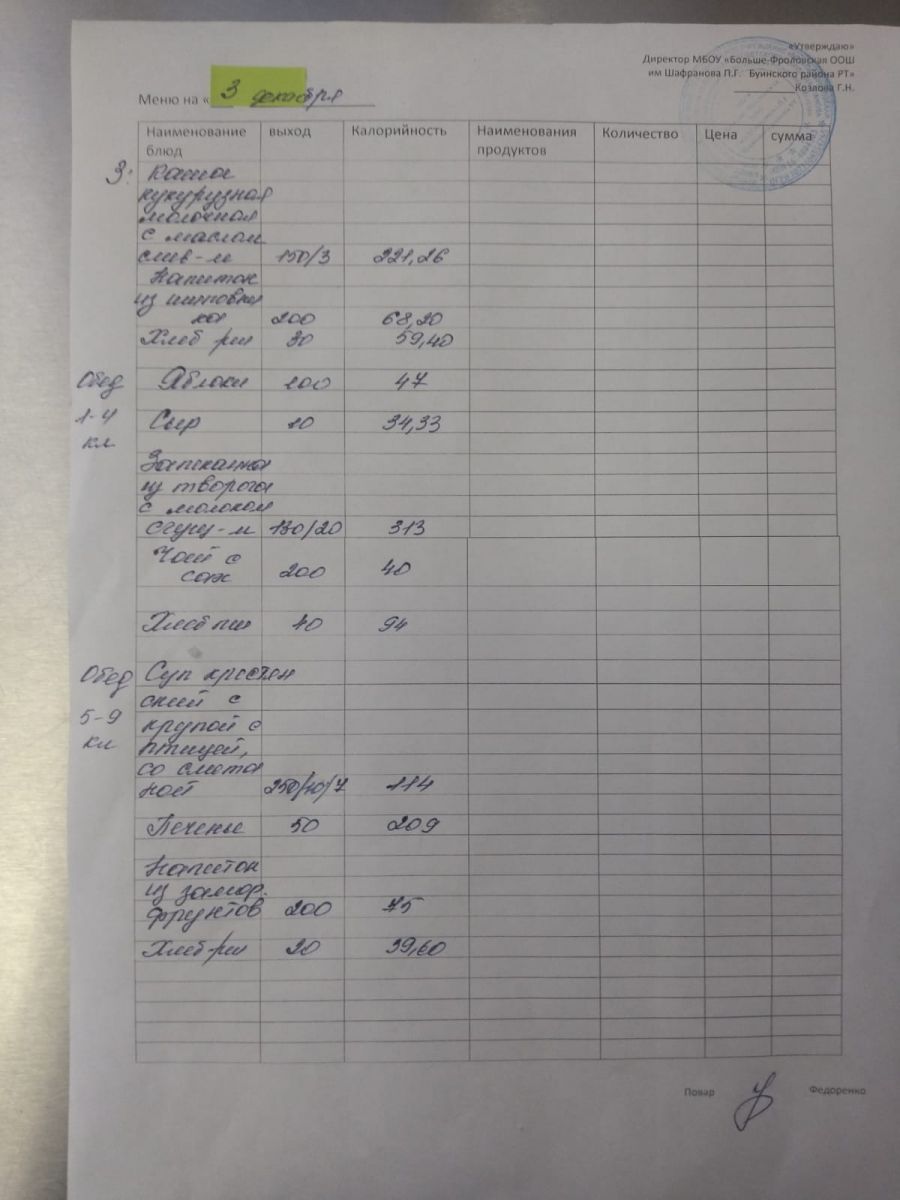 «Утверждаю»
Директор МБОУ «Больше-Фроловская ООШ
им Шафранова П.Г. Буинского района РТ»
Козлова Г.Н.
Меню на « 3 декабря
Наименование блюд выход Калорийность Наименования продуктов Количество Цена сумма
З: Каша
кукурузная
молочная
с маслом
слив-м 150/3 221,26
Напиток
из шиповни
ка 200 68,20
Хлеб рж 30 59,40
Обед Яблоки 100 47
1-4 Сыр 10 34,33
кл
Запеканка
из творога
с молоком
сгущ-м 130/20 313
Чай с
сах 200 40
Хлеб пш 40 94
Обед Суп крестьян
ский с
5-9 крупой с
кл птицей,
со смета
ной 250/10/7 114
Печенье 50 209
Напиток
из замор.
фруктов 200 75
Хлеб-рж 20 39,60
Повар Федоренко